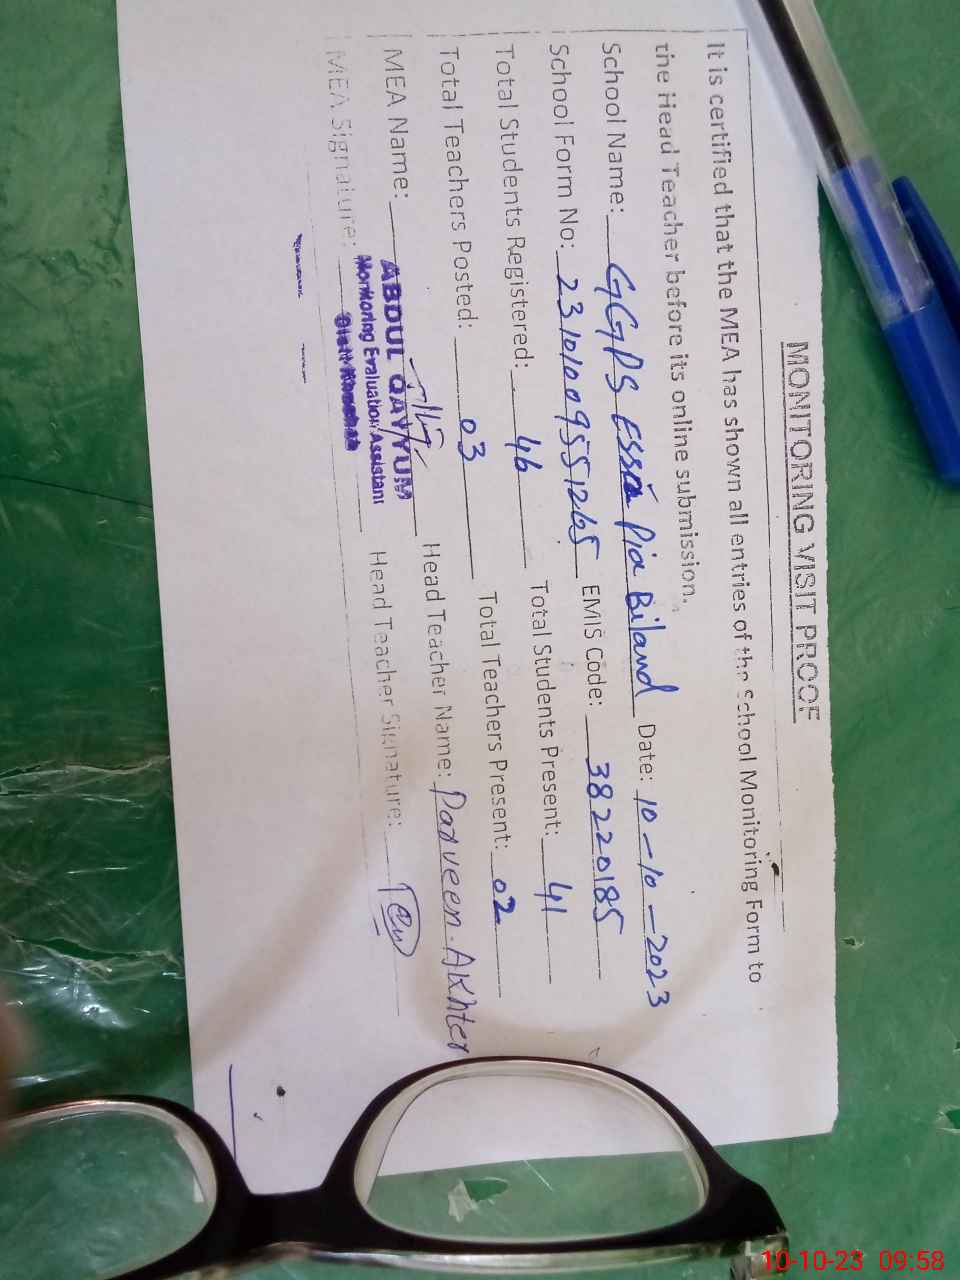 MONITORING VISIT PROOF
It is certified that the MEA has shown all entries of the School Monitoring Form to
the Head Teacher before its online submission.
School Name: GGPS Essra Pia Biland Date: 10-10-2023
School Form No: 23101009551265 EMIS Code: 38220185
Total Students Registered: 46 Total Students Present: 41
Total Teachers Posted: 03 Total Teachers Present: 02
MEA Name: ABDUL QAYYUM Head Teacher Name: Parveen Akhter
Monitoring Evaluation Assistant
MEA Signature: Head Teacher Signature:
10-10-23 09:58